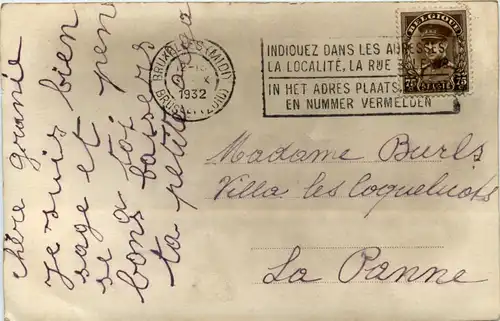 chère
je suis bien
sage et pen
se a toi
bons baisers
ta petite
BRUXELLES (MIDI)
X
1932
BRUSSEL (ZUID)
INDIQUEZ DANS LES ADRESSES
LA LOCALITÉ, LA RUE
IN HET ADRES PLAATS,
EN NUMMER VERMELDEN
BELGIQUE
75
Madame Burls
Villa les Coquelicots
La Panne